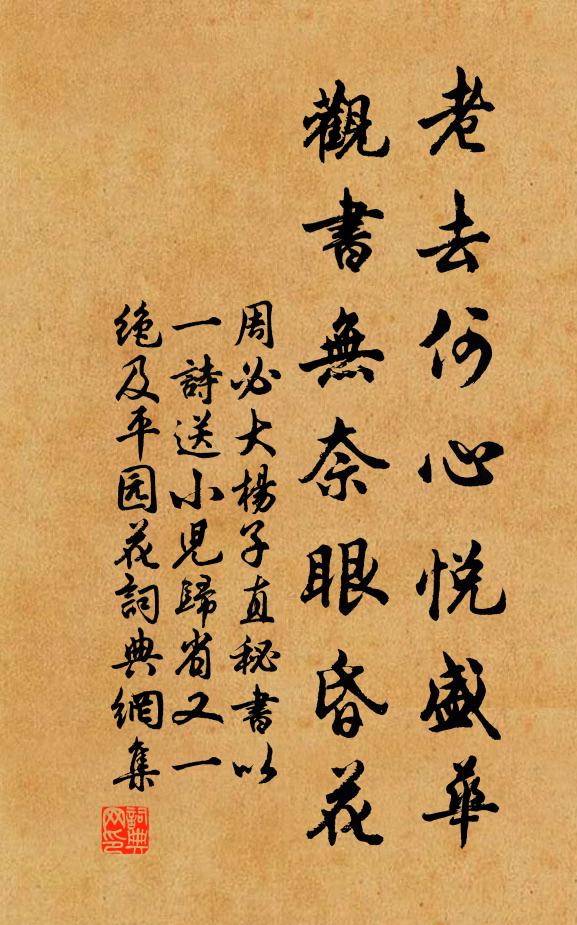 老去何心悅盛華
觀書無奈眼昏花
周必大楊子直秘書以
一詩送小兒歸省又一
絶及平园花詞典網集
詞典
网印